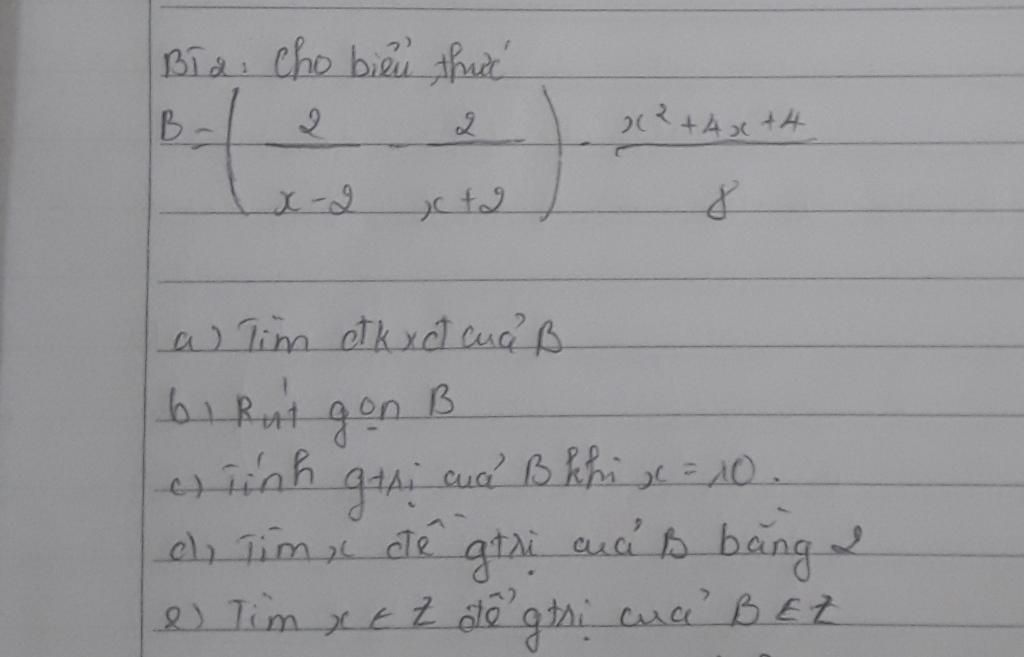 BT2: Cho biểu thức
B = ( 2/(x-2) - 2/(x+2) ) . (x² + 4x + 4)/8
a) Tìm đkxđ của B
b) Rút gọn B
c) Tính gtrị của B khi x = 10.
d) Tìm x để gtrị của B bằng 2
e) Tìm x ∈ Z để gtrị của B ∈ Z